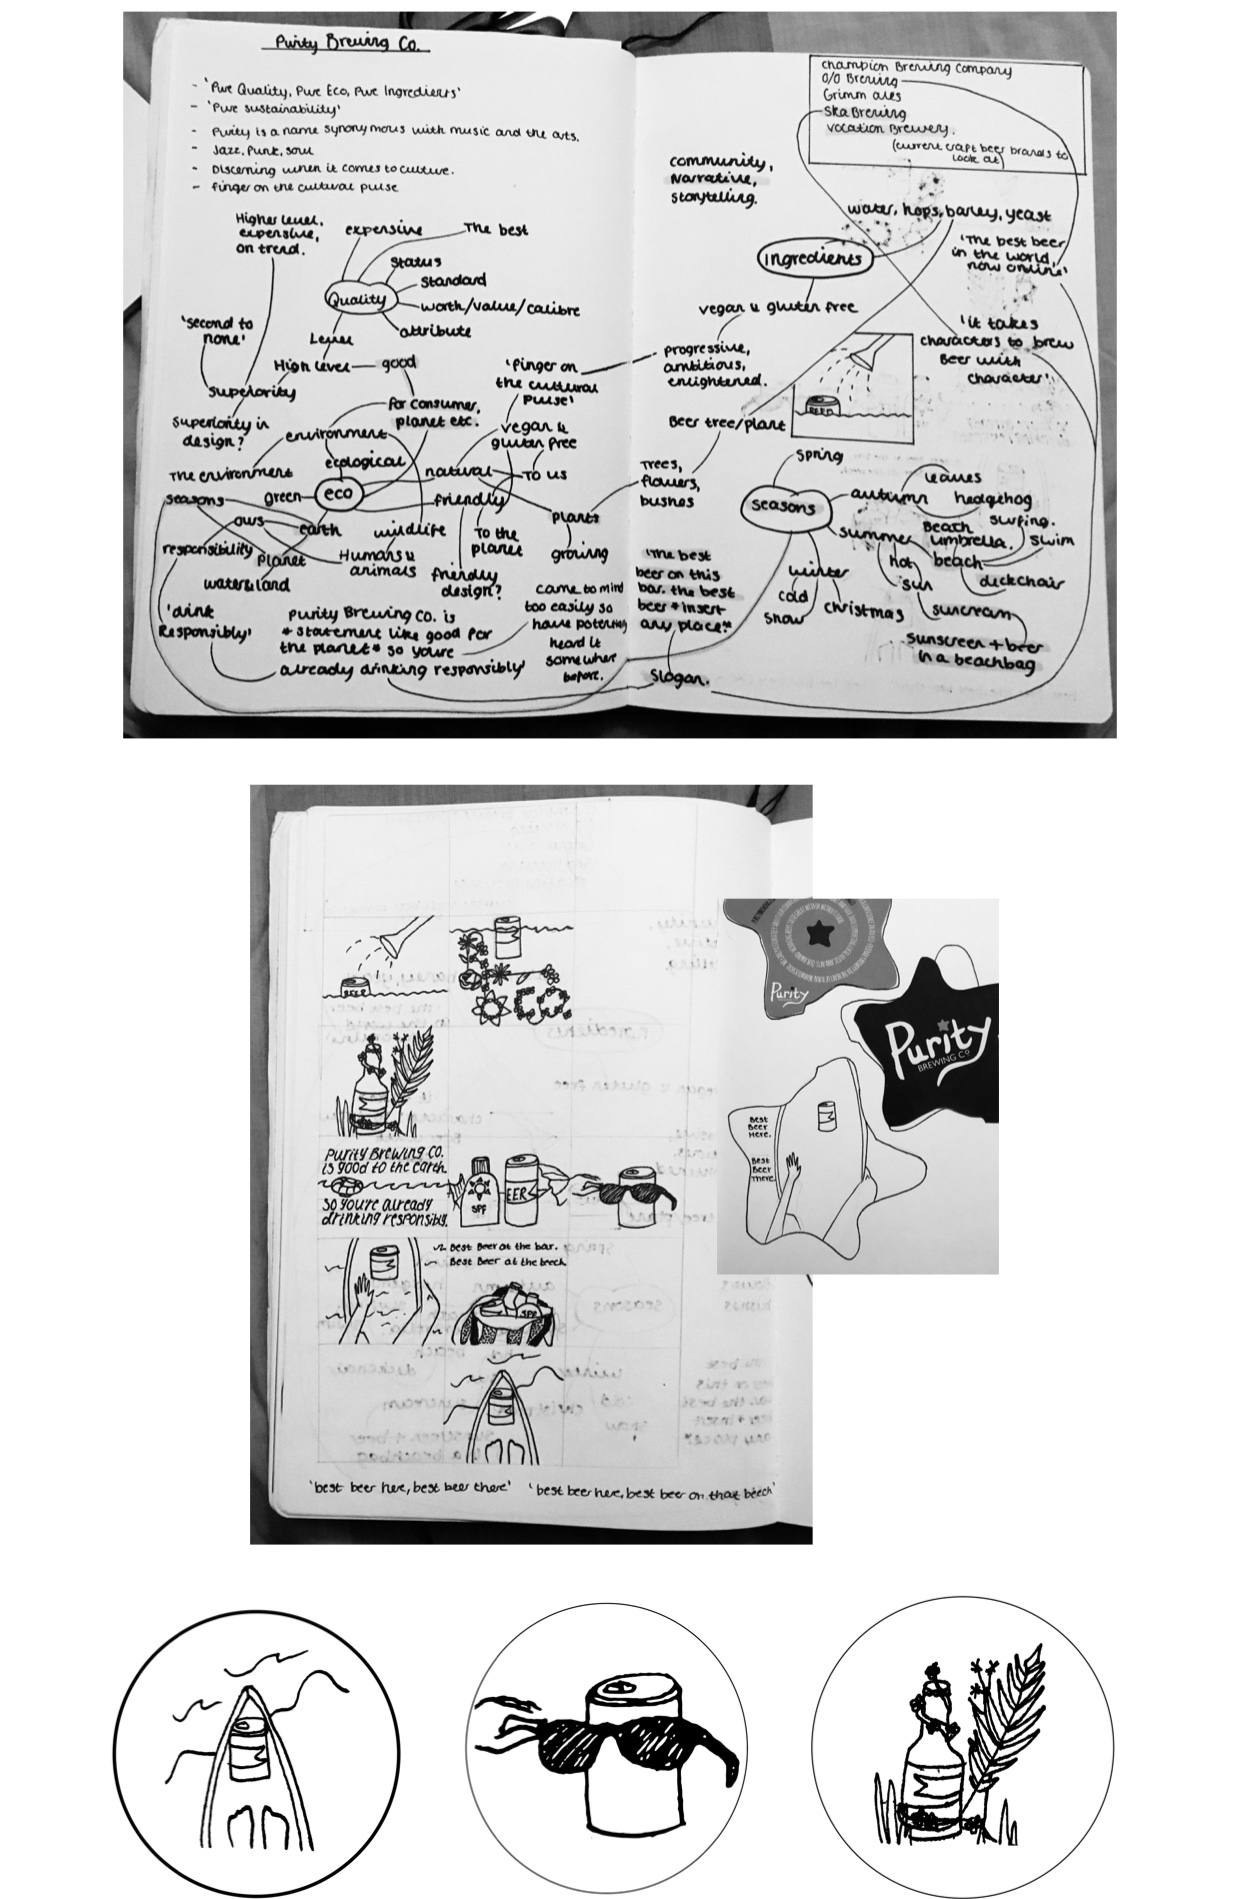 Purity Brewing Co.
- 'Pure Quality, Pure Eco, Pure Ingredients'
- 'Pure sustainability'
- Purity is a name synonymous with music and the arts.
- Jazz, Punk, soul
- Discerning when it comes to culture.
- finger on the cultural pulse
Higher level,
expensive,
on trend.
expensive
The best
Status
Standard
Quality
worth/value/calibre
attribute
Level
'second to
none'
High level
good
Superiority
Superiority in
design?
'finger on
the cultural
pulse'
for consumer,
planet etc.
vegan &
gluten free
environment
ecological
The environment
natural
To us
seasons
green
eco
friendly
ours
earth
wildlife
To the
planet
plants
growing
responsibility
Planet
Humans &
animals
water & land
friendly
design?
'drink
Responsibly'
Purity Brewing Co. is
* statement like good for
the planet * so youre
already drinking responsibly'
came to mind
too easily so
have potentially
heard it
somewhere
before.
Champion Brewing Company
O/O Brewing
Grimm ales
Ska Brewing
Vocation Brewery.
(current craft beer brands to
look at)
community,
Narrative,
storytelling.
water, hops, barley, yeast
Ingredients
'The best beer
in the world,
now online'
vegan & gluten free
'it takes
characters to brew
Beer with
character'
progressive,
ambitious,
enlightened.
BEER
Beer tree/plant
Trees,
flowers,
bushes
spring
seasons
autumn
leaves
hedgehog
summer
Beach
umbrella.
surfing.
swim
hot
beach
sun
deckchair
winter
cold
snow
christmas
suncream
sunscreen + beer
in a beachbag
'The best
beer on this
bar. the best
beer * insert
any place *'
Slogan.
BEER
ECO
Purity Brewing Co.
is good to the earth
so youre already
drinking responsibly.
SPF
EER
Best Beer at the bar.
Best Beer at the beech
SPF
'best beer here, best beer there' 'best beer here, best beer on that beech'
Purity
Purity
BREWING CO
BEST
BEER
HERE.
BEST
BEER
THERE.